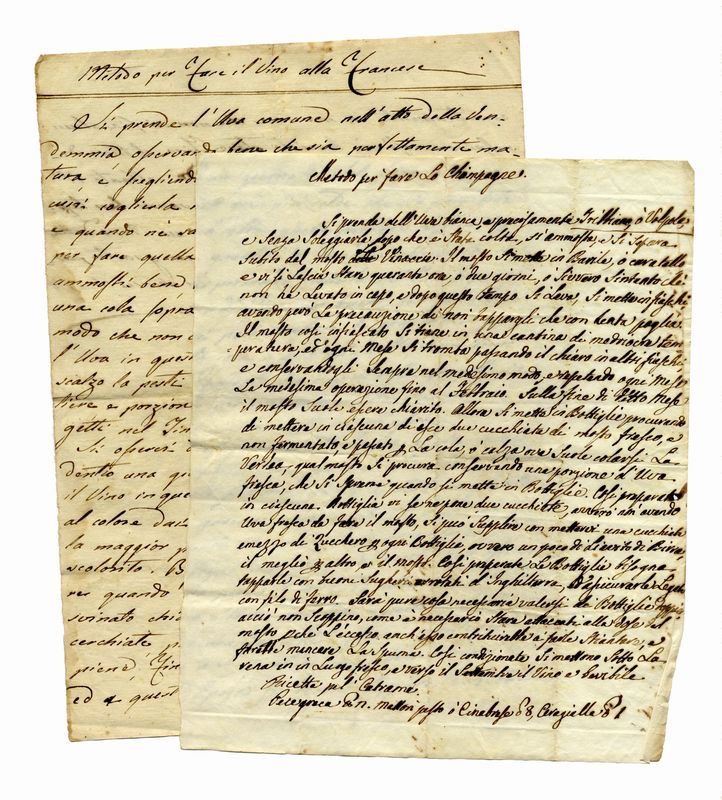 Metodo per Fare il Vino alla Francese
Si prende l'Uva comune nell'atto della Ven-
demmia osservando bene che sia perfettamente ma-
tura e scegliendo
così coglierla
e quando ne sa
per fare quella
ammosti bene
una cola sopra
modo che non
l'Uva in ques
scalzo la pesti
liere e porzion
getti nel
Si osservi
dentro una qu
il Vino in que
al colore
la maggior p
scolorito.
res quando
svinato chi
cerchiate
piene
ed a quel
Metodo per fare Lo Champagne.
Si prende dell'Uva bianca, e precisamente Trebbiano, o
e senza Soleggiarla dopo che è Stata colta, si ammosta, e Si Separa
Subito del mosto dalle Vinaccie. Il mosto Si mette in Barile, o Caratello
e vi si Lascia Stare quarant'ore, o due giorni, o Sivvero Sintanto chè
non ha Levato in capo, e dopo questo tempo Si Leva, Si mette in fiaschi
avendo però La precauzione di non tappargli che con tenta paglia.
Il mosto così infiascato Si tiene in una cantina di mediocre tem-
peratura, ed ogni Mese Si tromba passando il chiaro in altri fiaschi
e conservandogli Sempre nel medesimo modo, e ripetendo ogni Mese
La medesima operazione fino al Febbraio. Sulla fine di detto Mese
il mosto Suole essere chiarito. Allora Si mette in Bottiglie procurando
di mettere in ciascuna di esse due cucchiaiate di mosto fresco, e
non fermentato, e passato p. La cola, o calza ove Suole colarsi La
qual mosto Si procura conservando una porzione d'Uva
fresca, che Si Spreme quando si mette in Bottiglie. Così preparate
in ciascuna Bottiglia vi se ne pone due cucchiate, ovvero non avendo
Uva fresca da fare il mosto, si può Supplire con mettervi una cucchiata
e mezzo di Zucchero p. ogni Bottiglia, ovvero un poco di Lievito di Birra
il meglio p. altro è il mosto. Così preparate Le Bottiglie bisogna
tapparle con buoni Sugheri d'Inghilterra, ed assicurarle Legate
con filo di ferro. Sarà pure cosa necessaria valersi di Bottiglie
acciò non Scoppino, come è necessario Stare attenti alla dose del
mosto p.chè l'eccesso anch'esso contribuirebbe a farle Stiantare, e
farebbe mancare La Spuma. Così condizionate Si mettono Sotto La
rena in un Luogo fresco, e verso il Settembre il Vino è bevibile
Ricetta pel Catrame.
Pece greca n. Matton pesto o Cinabrese 8, 1